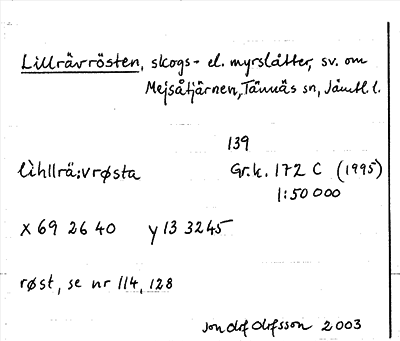 Lillrävrösten, skogs- el. myrslåtter, sv. om
Mejsåtjärnen, Tännäs sn, Jämtl. l.
139
lìhllrä:vrøsta Gr.k. 172 C (1995)
1:50 000
X 69 26 40 y 13 32 45
røst, se nr 114, 128
Jon Olof Olofsson 2003